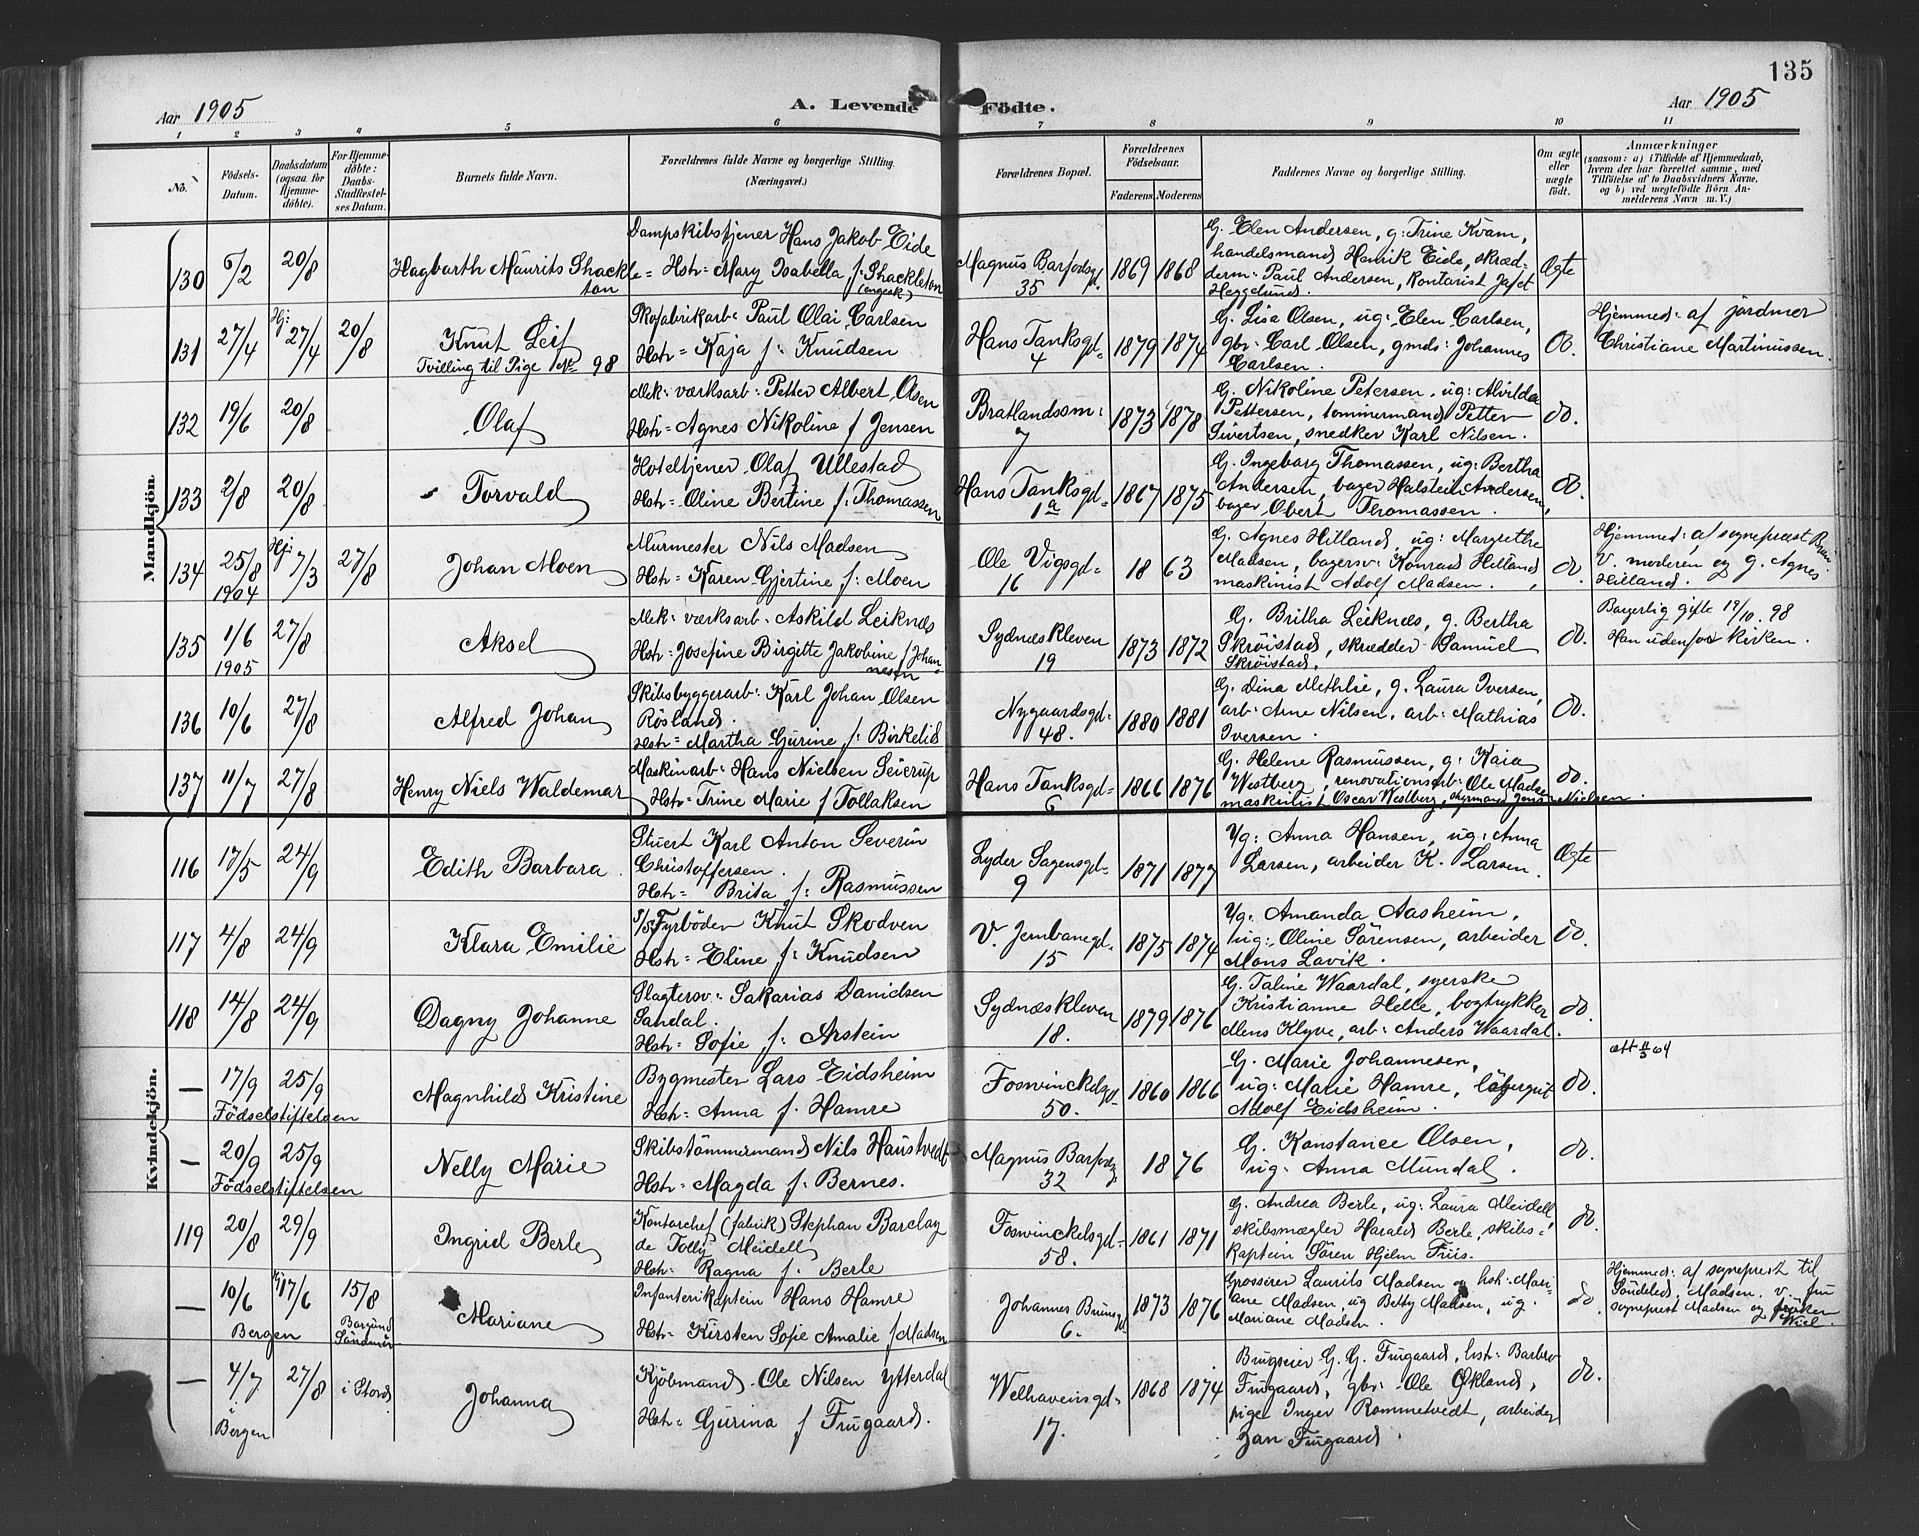 135
Aar 1905
A. Levende Födte.
Aar 1905
1 2 3 4 5 6 7 8 9 10 11
No.
Födsels-Datum.
Daabsdatum (ogsaa for Hjemme-döbte).
For Hjemme-döbte: Daabs-Stadfæstel-ses Datum.
Barnets fulde Navn.
Forældrenes fulde Navne og borgerlige Stilling.
(Næringsvei.)
Forældrenes Bopæl.
Forældrenes Födselsaar.
Faderens. Moderens.
Faddernes Navne og borgerlige Stilling.
Om ægte eller uægte födt.
Anmærkninger
(saasom: a) i Tilfælde af Hjemmedaab,
hvem der har forrettet samme, med
Tilföielse af to Daabsvidners Navne,
og b) ved uægtefödte Börn An-
melderens Navn m. V.)
Mandkjön.
130 6/2 20/8
Hagbarth Maurits Shackle=
ton
Dampskibstjener Hans Jakob Eide
Hstr= Mary Isabella f: Shackleton
(engesk)
Magnus Barfodsgd.
35
1869 1868
G. Elen Andersen, g: Trine Kvam,
handelsmand Henrik Eide, skræd-
derm: Paul Andersen, Kontorist Jafet
Heggelund.
Ægte
131 27/4 Hj: 27/4 20/8
Knut Leif
Tvilling til Pige No 98
Skofabrikarb: Paul Olai Carlsen
Hstr= Kaja f: Knudsen
Hans Tanksgd=
4
1879 1874
G. Lisa Olsen, ug: Elen Carlsen,
gbr: Carl Olsen, gmds: Johannes
Carlsen.
do.
Hjemmed: af jordmor
Christiane Martinussen.
132 19/6 20/8
Olaf
Mek: værksarb: Petter Albert Olsen
Hstr= Agnes Nikoline f Jensen
Bratlandssm:
7
1873 1878
G. Nikoline Petersen, ug: Alvilda
Pettersen, tømmermand Petter
Sivertsen, snedker Karl Nilsen.
do.
133 2/8 20/8
Torvald
Hoteltjener Olaf Ullestad
Hstr= Oline Bertine f: Thomassen
Hans Tanksgd=
1a
1867 1875
G. Ingeborg Thomassen, ug: Bertha
Andersen, bager Halstein Andersen,
bager Obert Thomassen.
do.
134 25/8 1904 Hj: 7/3 27/8
Johan Moen
Murmester Nils Madsen
Hstr= Karen Gjertine f: Moen
Ole Vigsgd=
16
1863
G. Agnes Hilland, ug: Margrethe
Madsen, bagersv: Konrad Hilland
maskinist Adolf Madsen.
do.
Hjemmed: af sogneprest
V. moderen og g. Agnes
Hilland.
135 1/6 1905 27/8
Aksel
Mek: værksarb. Askild Leiknæs
Hstr= Josefine Birgitte Jakobine f Johan-
nesen
Sydnæskleven
19
1873 1872
G. Britha Leiknæs, g. Bertha
Skrøistad, skrædder Samuel
Skrøistad.
do.
Borgerlig gifte 19/10. 98
Han udenfor kirken.
136 10/6 27/8
Alfred Johan
Skibsbyggerarb: Karl Johan Olsen
Røsland.
Hstr= Martha Gurine f: Birkelid
Nygaardsgd=
48.
1880 1881
G. Dina Methlie, g. Laura Iversen,
arb: Arne Nilsen, arb: Mathias
Iversen.
do.
137 11/7 27/8
Henry Niels Waldemar
Maskinarb: Hans Nielsen Seierup
Hstr= Trine Marie f Tollaksen
Hans Tanksgd=
6
1866 1876
G. Helene Rasmussen, g: Kaia
Westberg, renovationsarb: Ole Madsen
maskinist Oscar Westberg, styrmand Jens Nielsen.
do.
Kvindekjön.
116 17/5 24/9
Edith Barbara.
Stuert Karl Anton Severin
Christoffersen.
Hstr= Brita f: Rasmussen
Lyder Sagensgd=
9
1871 1877
Ug: Anna Hansen, ug: Anna
Larsen, arbeider K. Larsen.
Ægte
117 4/8 24/9
Klara Emilie
Fyrbøder Knut Skodven
Hstr= Eline f: Knudsen
V. Jernbanegd=
15
1875 1874
Ug: Amanda Aasheim,
ug: Oline Sørensen, arbeider
Mons Lavik.
do.
118 14/8 24/9
Dagny Johanne
Slagtersv: Sakarias Danidsen
Sandal.
Hstr= Sofie f: Arstein
Sydnæskleven
18.
1879 1876
G. Taline Waardal, syerske
Kristianne Helle, bogtrykker
Mens Klyve, arb: Anders Waardal.
do.
— 17/9 25/9
Fødselstiftelsen
Magnhild Kristine
Bygmester Lars Eidsheim
Hstr= Anna f. Hamre
Fosvinckelsgd
50.
1860 1866
G. Marie Johannesen,
ug: Marie Hamre,
Adolf Eidsheim.
do.
— 20/9 25/9
Fødselstiftelsen
Nelly Marie
Skibstømmermand Nils Haustvedt
Hstr= Magda f: Bernes.
Magnus Barfodsg
32
1876
G. Konstance Olsen,
ug: Anna Mundal.
do.
119 20/8 29/9
Ingrid Berle
Kontorchef (fabrik) Stephan Barclay
de Tolly Meidell
Hstr= Ragna f. Berle
Fosvinckelsgd=
58.
1861 1871
G. Andrea Berle, ug: Laura Meidell,
skibsmægler Harald Berle, skibs=
kaptein Sören Hjelm Friis.
do.
— 10/6 Hj 17/6 15/8
Bergen
Borgund
Söndmör
Mariane
Infanterikaptein Hans Hamre
Hstr= Kirsten Sofie Amalie f Madsen
Johannes Brunsgd
6.
1873 1876
Grosserer Laurits Madsen og hst: Mari-
ane Madsen, ug Betty Madsen, ug.
Mariane Madsen.
do.
Hjemmed: af sogneprest til
Söndeled, Madsen. v. fru
sogneprest Madsen og frøken
— 4/7 27/8 i Stord
Bergen
Johanna
Kjøbmand Ole Nilsen Ytterdal
Hstr= Gurina f Frugaard.
Welhavensgd=
17.
1868 1874
Brugseier G. G. Frugaard, hstr= Barbro
Frugaard, gbr: Ole Økland,
pige Inger Rommetvedt, arbeider
Jan Frugaard.
do.